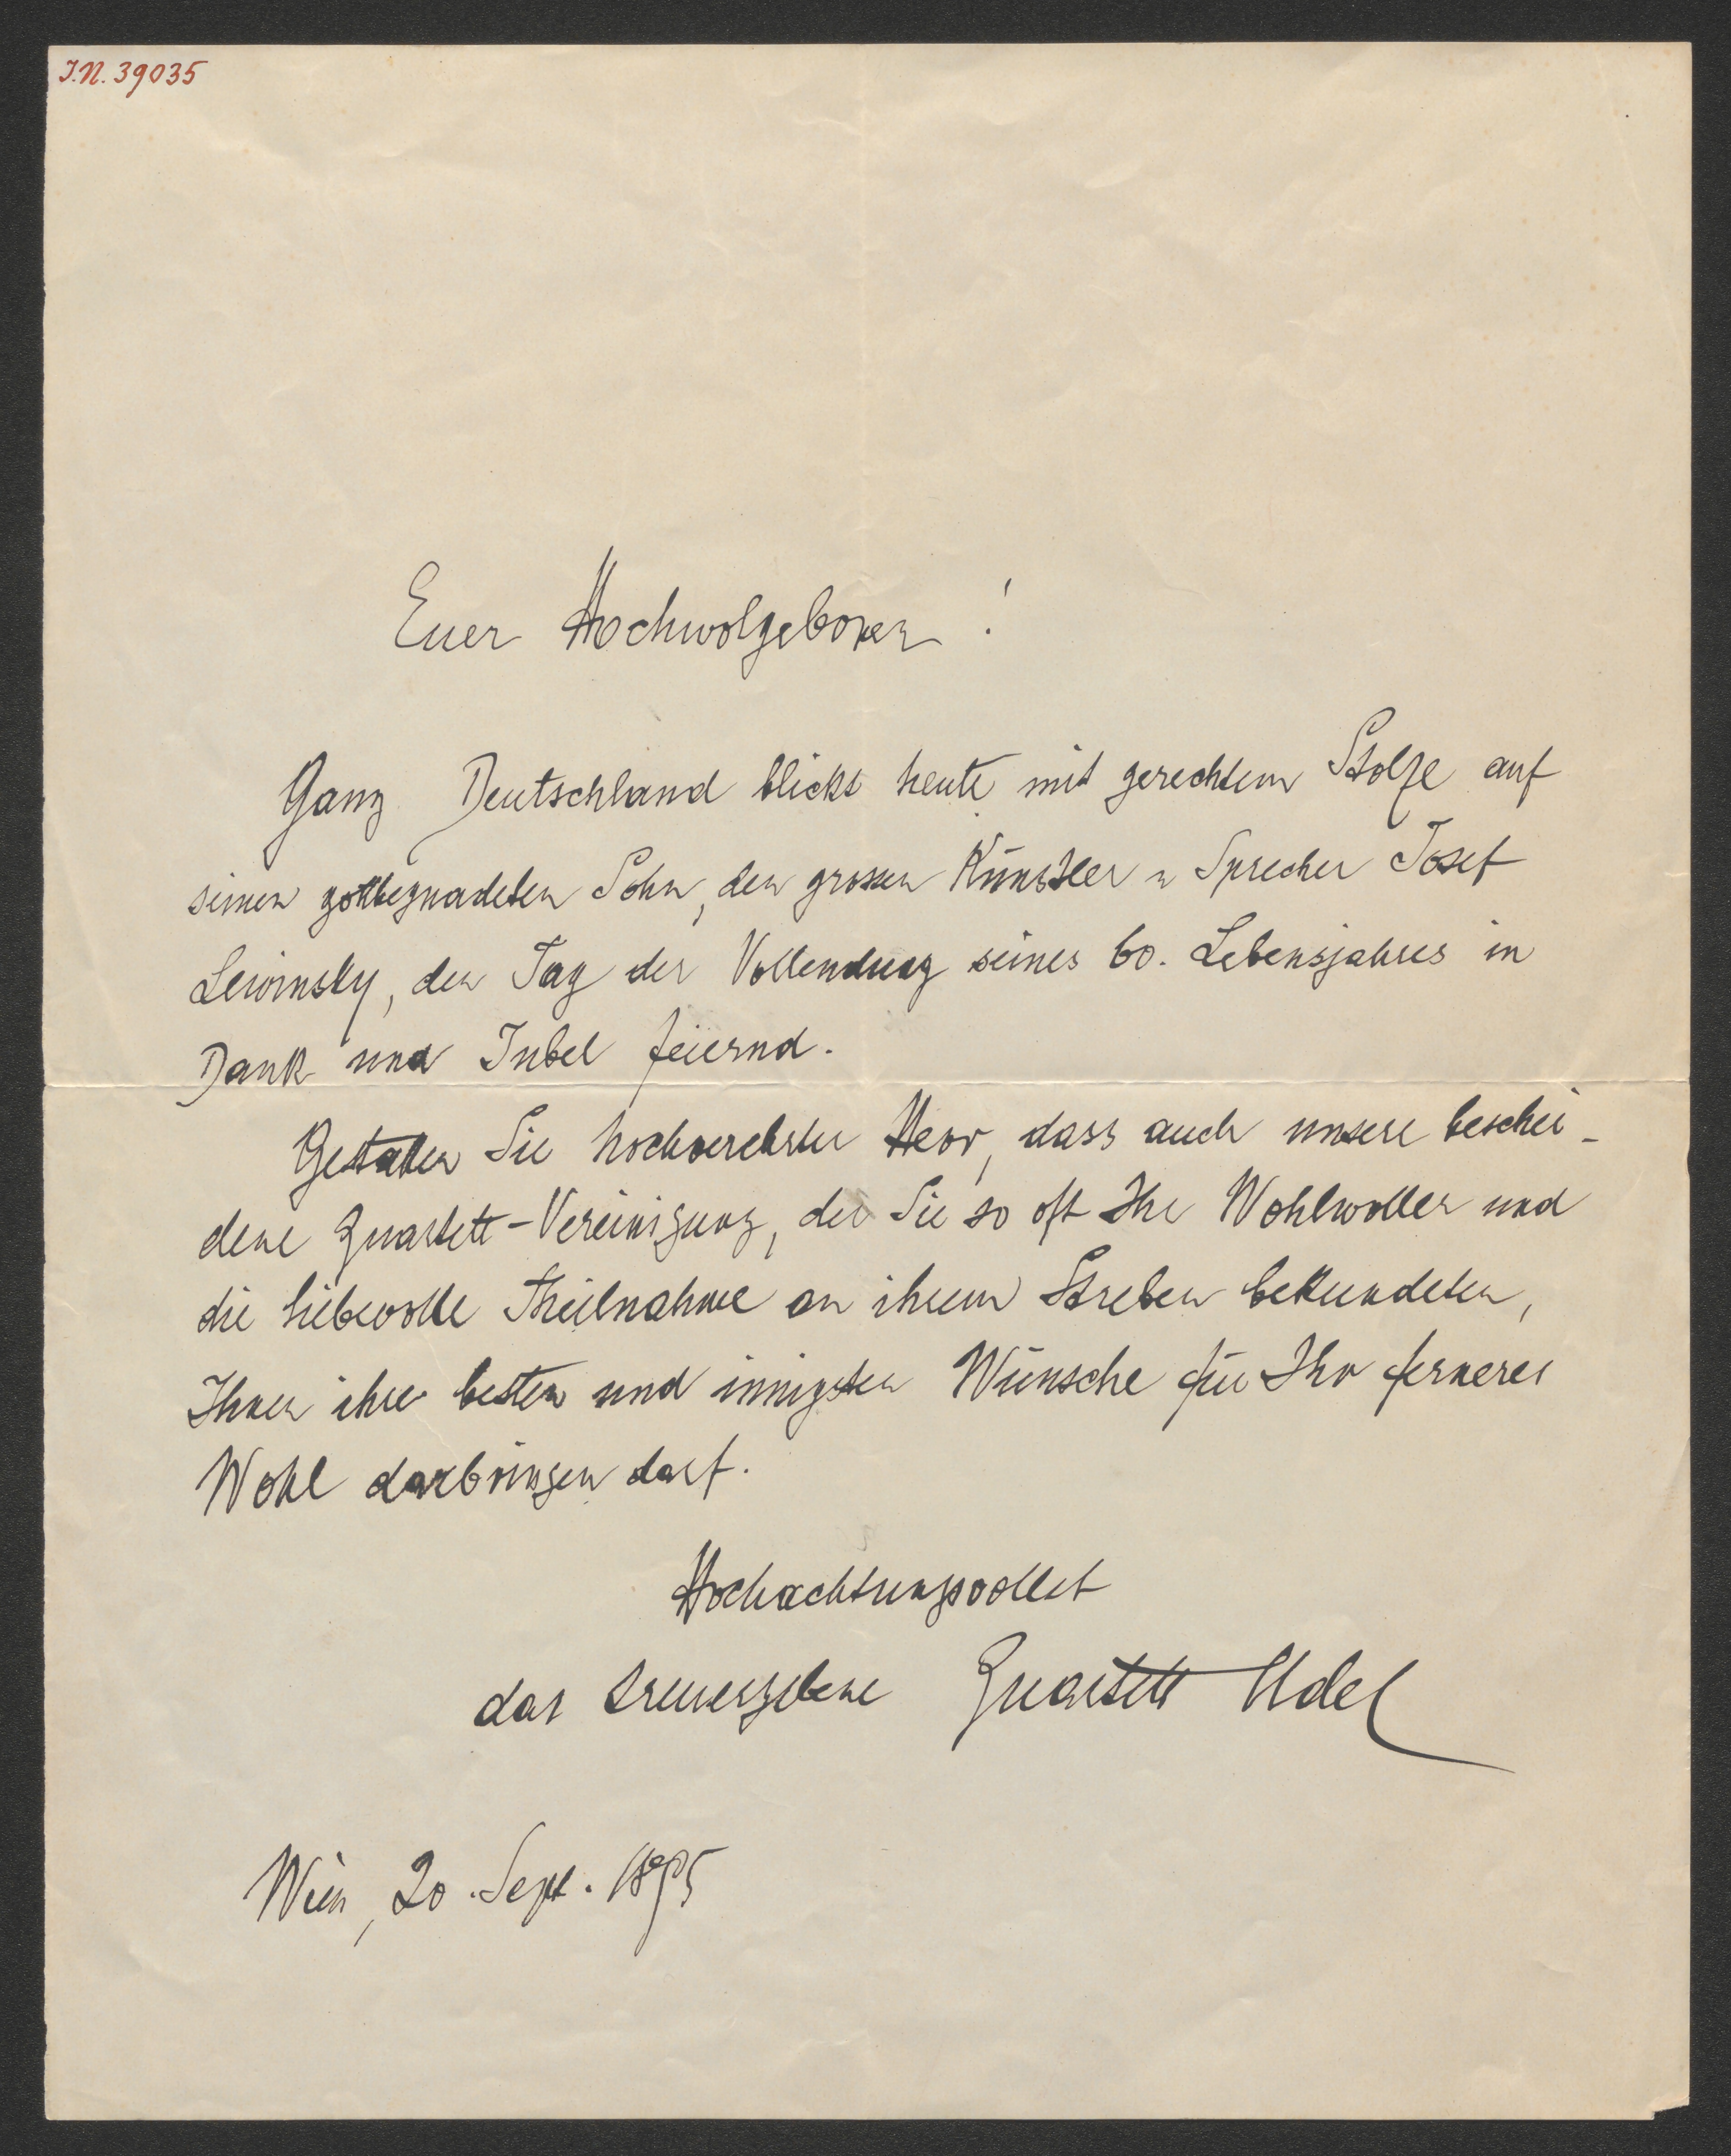 I.N. 39035
Euer Hochwolgeboren!
Ganz Deutschland blickt heute mit gerechtem Stolze auf
seinen gottbegnadeten Sohn, den grossen Künstler u Sprecher Josef
Lewinsky, den Tag der Vollendung seines 60. Lebensjahres in
Dank und Jubel feiernd.
Gestatten Sie hochverehrter Herr, dass auch unsere beschei-
dene Quartett-Vereinigung, der Sie so oft Ihr Wohlwollen und
die liebevolle Theilnahme an ihrem Streben bekundeten,
Ihnen ihre besten und innigsten Wünsche für Ihr ferneres
Wohl darbringen darf.
Hochachtungsvollst
das treuergebene Quartett Udel
Wien, 20. Sept. 1895